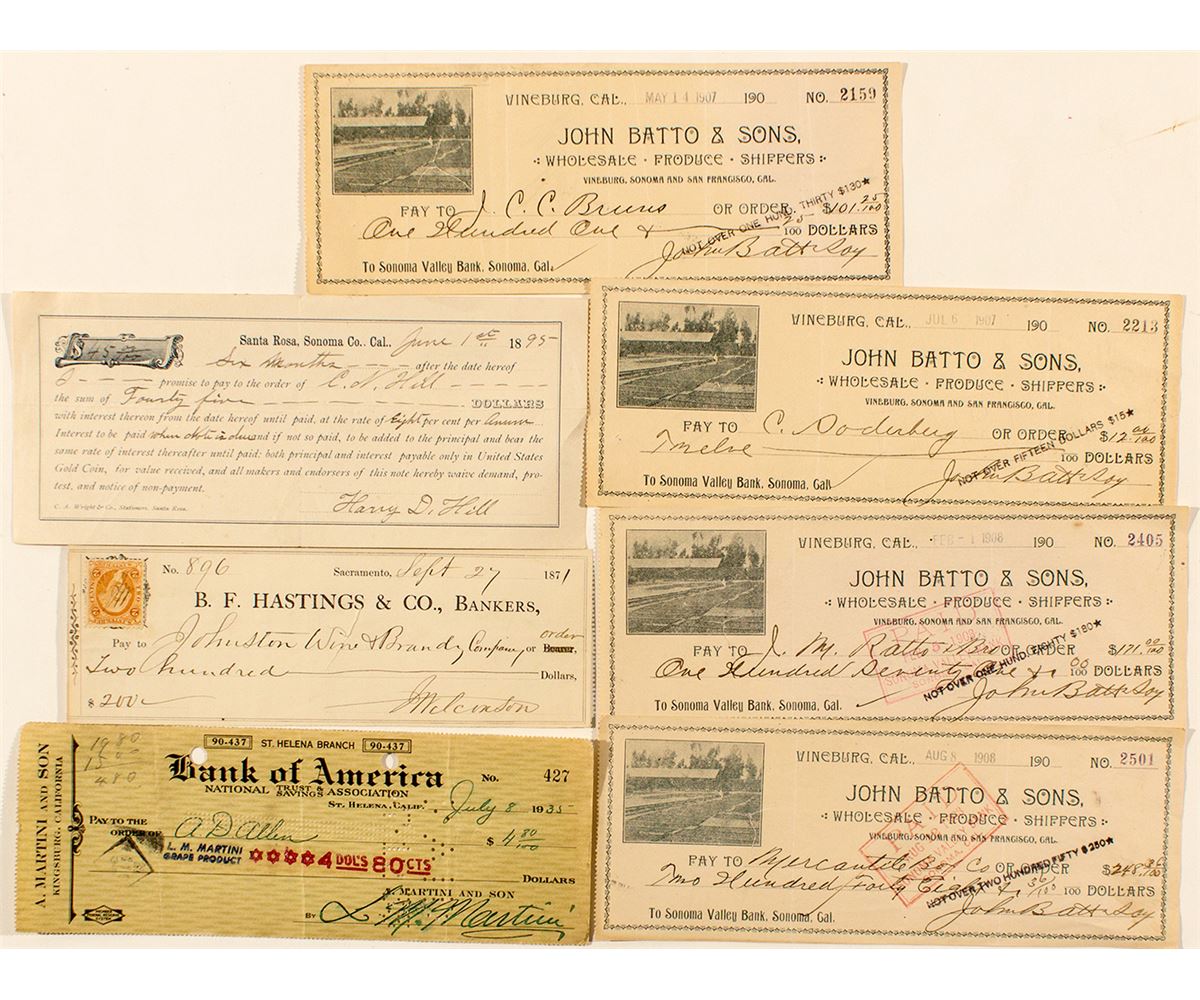 VINEBURG, CAL., MAY 14 1907 190 NO. 2159
JOHN BATTO & SONS,
WHOLESALE · PRODUCE · SHIPPERS
VINEBURG, SONOMA AND SAN FRANCISCO, CAL.
PAY TO J. C. C. Bruns OR ORDER $101.25/100
NOT OVER ONE HUND. THIRTY $130★
One Hundred One & 25/100 DOLLARS
To Sonoma Valley Bank, Sonoma, Cal.
John Batto & Soy
$45 00/100
Santa Rosa, Sonoma Co., Cal., June 1st 1895
Six Months after the date hereof
I promise to pay to the order of C. N. Hill
the sum of Fourty five DOLLARS
with interest thereon from the date hereof until paid, at the rate of Eight per cent per Annum
Interest to be paid when Note is due and if not so paid, to be added to the principal and bear the
same rate of interest thereafter until paid: both principal and interest payable only in United States
Gold Coin, for value received, and all makers and endorsers of this note hereby waive demand, pro-
test, and notice of non-payment.
Harry D. Hill
C. A. Wright & Co., Stationers, Santa Rosa.
VINEBURG, CAL., JUL 6 1907 190 NO. 2213
JOHN BATTO & SONS,
WHOLESALE · PRODUCE · SHIPPERS
VINEBURG, SONOMA AND SAN FRANCISCO, CAL.
PAY TO C. Soderberg OR ORDER $12.00/100
NOT OVER FIFTEEN DOLLARS $15★
Twelve 100 DOLLARS
To Sonoma Valley Bank, Sonoma, Cal.
John Batto & Soy
No. 896 Sacramento, Sept 27 1871
B. F. HASTINGS & CO., BANKERS,
Pay to Johnston Wine & Brandy Company or order Bearer,
Two hundred Dollars,
$200 J Wilcinson
VINEBURG, CAL., FEB -1 1908 190 NO. 2405
JOHN BATTO & SONS,
WHOLESALE · PRODUCE · SHIPPERS
VINEBURG, SONOMA AND SAN FRANCISCO, CAL.
PAID
PAY TO J. M. Ratto & Bro OR ORDER $171.00/100
NOT OVER ONE HUND. EIGHTY $180★
One Hundred Seventy One & 00/100 DOLLARS
To Sonoma Valley Bank, Sonoma, Cal.
John Batto & Soy
A. MARTINI AND SON
KINGSBURG, CALIFORNIA
1980
1500
480
90-437 ST. HELENA BRANCH 90-437
Bank of America No. 427
NATIONAL TRUST & SAVINGS ASSOCIATION
ST. HELENA, CALIF. July 8 1935
PAY TO THE
ORDER OF A D Allen $4 80/100
L. M. MARTINI
GRAPE PRODUCT
4 DOL'S 80 CTS
DOLLARS
A. MARTINI AND SON
BY L. M. Martini
VINEBURG, CAL., AUG 8 1908 190 NO. 2501
JOHN BATTO & SONS,
WHOLESALE · PRODUCE · SHIPPERS
VINEBURG, SONOMA AND SAN FRANCISCO, CAL.
PAID
PAY TO Mercantile Box Co OR ORDER $248.36/100
NOT OVER TWO HUNDRED FIFTY $250★
Two Hundred Forty Eight & 36/100 100 DOLLARS
To Sonoma Valley Bank, Sonoma, Cal.
John Batto & Soy